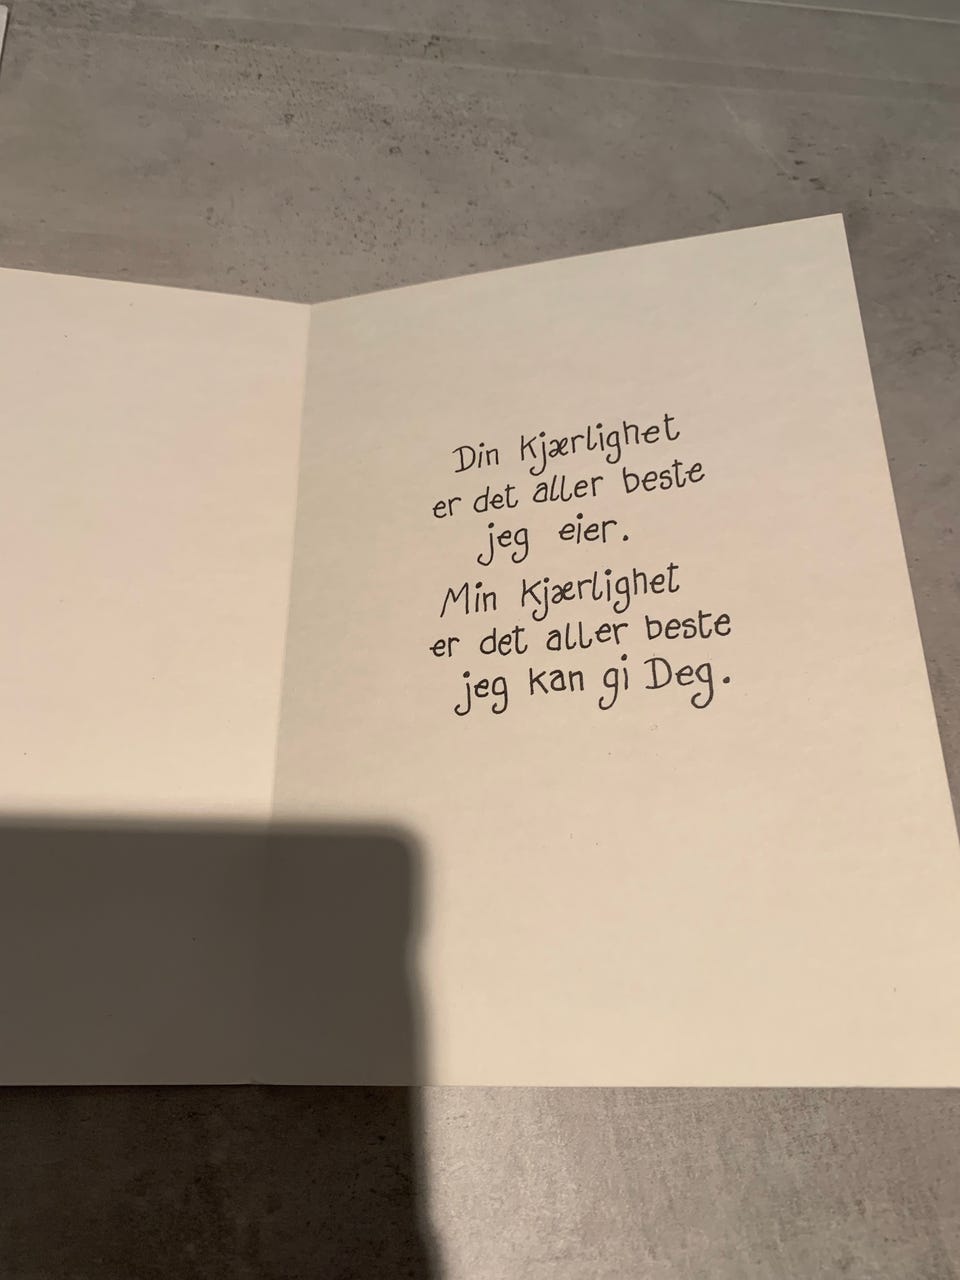 Din Kjærlighet
er det aller beste
jeg eier.
Min Kjærlighet
er det aller beste
jeg kan gi Deg.